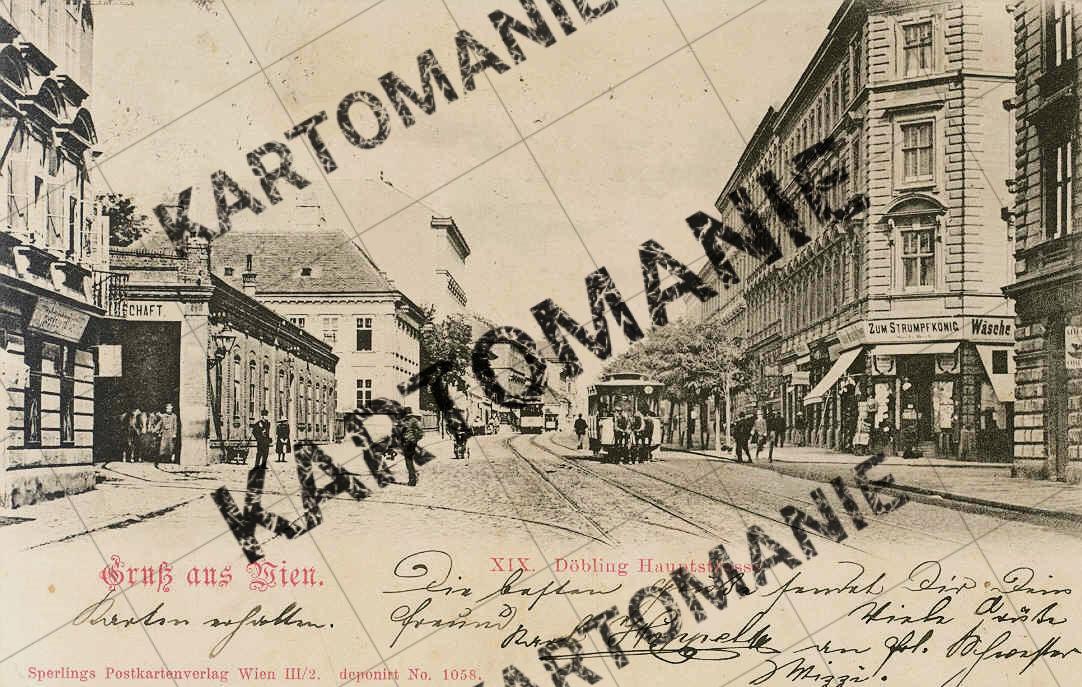 KARTOMANIE
KARTOMANIE
KARTOMANIE
KARTOMANIE
SCHAFT.
ZUM STRUMPFKÖNIG Wäsche
Gruß aus Wien.
XIX. Döbling Hauptstrasse
Karten erhalten.
Die besten Grüße sendet Dir Dein
Freund
Viele Grüße
an Frl. Schwester
Mizzi.
Sperlings Postkartenverlag Wien III/2. deponirt No. 1058.